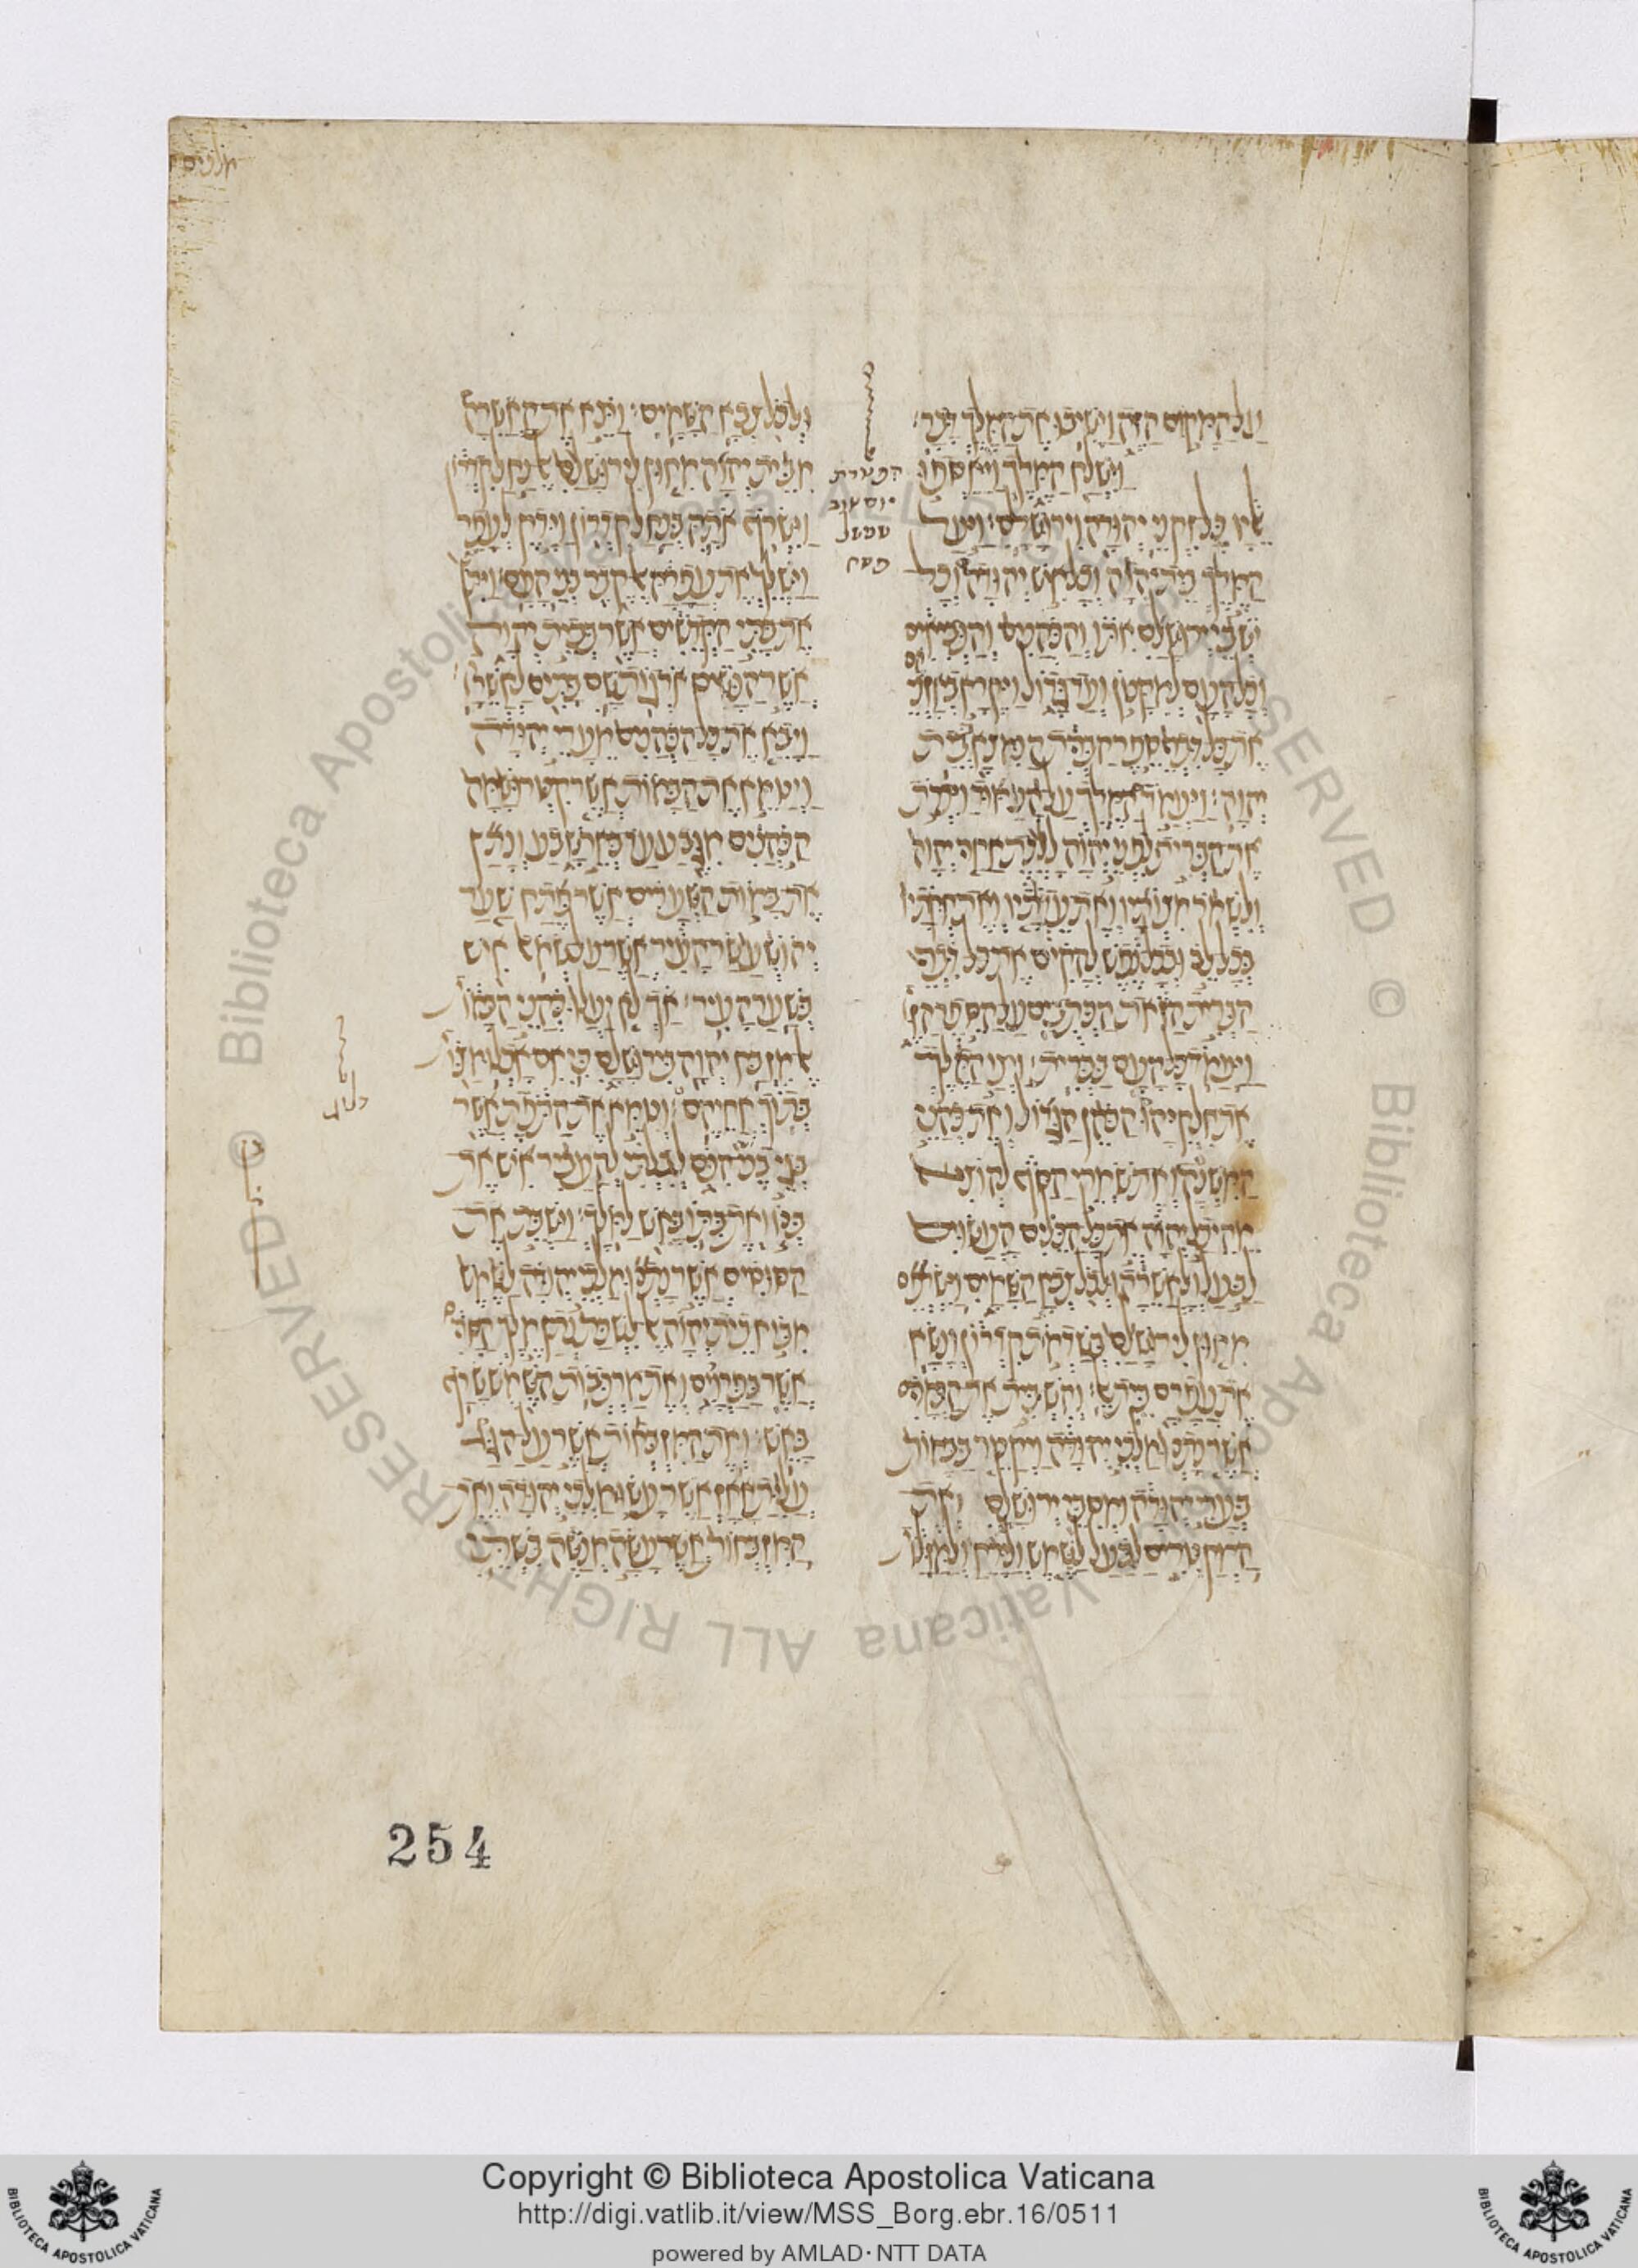 מלכים
על המקום הזה וישיבו את המלך דבר:
וישלח המלך ויאספו
אליו כל זקני יהודה וירושלם: ויעל
המלך בית יהוה וכל איש יהודה וכל
ישבי ירושלם אתו והכהנים והנביאים
וכל העם למקטן ועד גדול ויקרא באזניהם
את כל דברי ספר הברית הנמצא בבית
יהוה: ויעמד המלך על העמוד ויכרת
את הברית לפני יהוה ללכת אחר יהוה
ולשמר מצותיו ואת עדותיו ואת חקתיו
בכל לב ובכל נפש להקים את דברי
הברית הזאת הכתבים על הספר הזה
ויעמד כל העם בברית: ויצו המלך
את חלקיהו הכהן הגדול ואת כהני
המשנה ואת שמרי הסף להוציא
מהיכל יהוה את כל הכלים העשוים
לבעל ולאשרה ולכל צבא השמים וישרפם
מחוץ לירושלם בשדמות קדרון ונשא
את עפרם בית אל: והשבית את הכמרים
אשר נתנו מלכי יהודה ויקטר בבמות
בערי יהודה ומסבי ירושלם ואת
המקטרים לבעל לשמש ולירח ולמזלות
הפטרת
יום טוב
שני של
פסח
ולכל צבא השמים: ויצא את האשרה
מבית יהוה מחוץ לירושלם אל נחל קדרון
וישרף אתה בנחל קדרון וידק לעפר
וישלך את עפרה על קבר בני העם: ויתץ
את בתי הקדשים אשר בבית יהוה
אשר הנשים ארגות שם בתים לאשרה:
ויבא את כל הכהנים מערי יהודה
ויטמא את הבמות אשר קטרו שמה
הכהנים מגבע עד באר שבע ונתץ
את במות השערים אשר פתח שער
יהושע שר העיר אשר על שמאול איש
בשער העיר: אך לא יעלו כהני הבמות
אל מזבח יהוה בירושלם כי אם אכלו מצות
בתוך אחיהם: וטמא את התפת אשר
בגי בני הנם לבלתי להעביר איש את
בנו ואת בתו באש למלך: וישבת את
הסוסים אשר נתנו מלכי יהודה לשמש
מבוא בית יהוה אל לשכת נתן מלך הסריס
אשר בפרורים ואת מרכבות השמש שרף
באש: ואת המזבחות אשר על הגג
עלית אחז אשר עשו מלכי יהודה ואת
המזבחות אשר עשה מנשה בשתי
254
Copyright © Biblioteca Apostolica Vaticana
http://digi.vatlib.it/view/MSS_Borg.ebr.16/0511
powered by AMLAD · NTT DATA